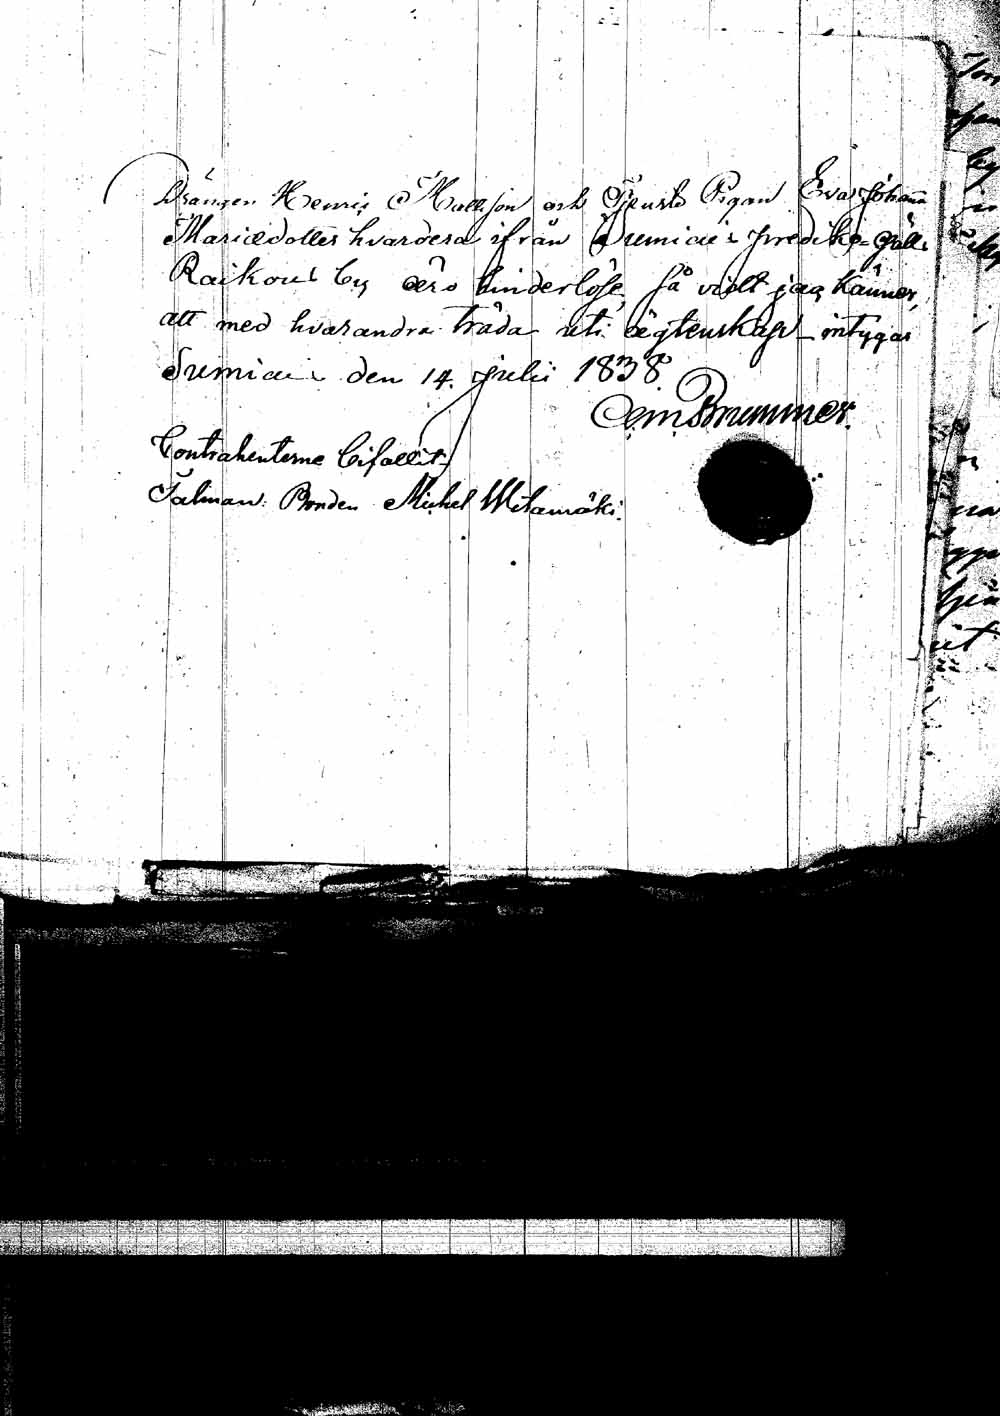 Drängen Henric Mattsson och Tjenste Pigan Ewa Johanna
Mariædotter hvardera ifrån Sumiais prediko-gälls
Raikous by äro hinderlöse, så vidt jag känner,
att med hvarandra träda uti ägtenskap intygar
Sumiais den 14. Julii 1838.
Brummer.
Contrahenterne bifallit
Talman: Bonden Michel Witamäki.